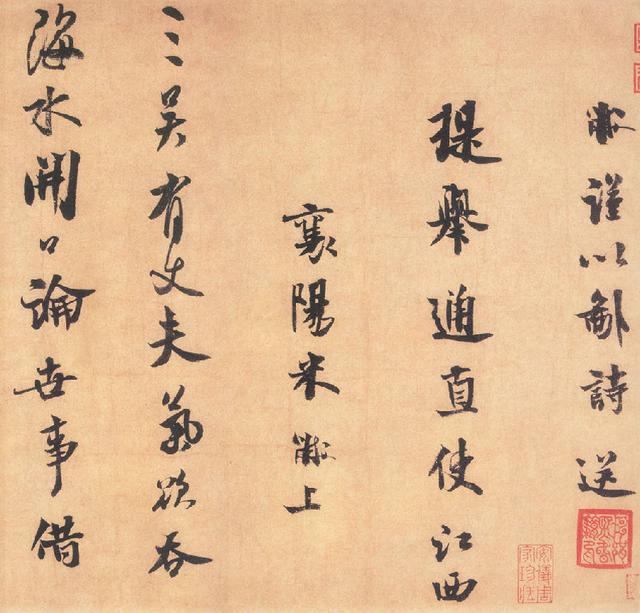 黻謹以鄙詩送
提舉通直使江西
襄陽米黻上
三吳有丈夫氣欲吞
海水開口論世事借